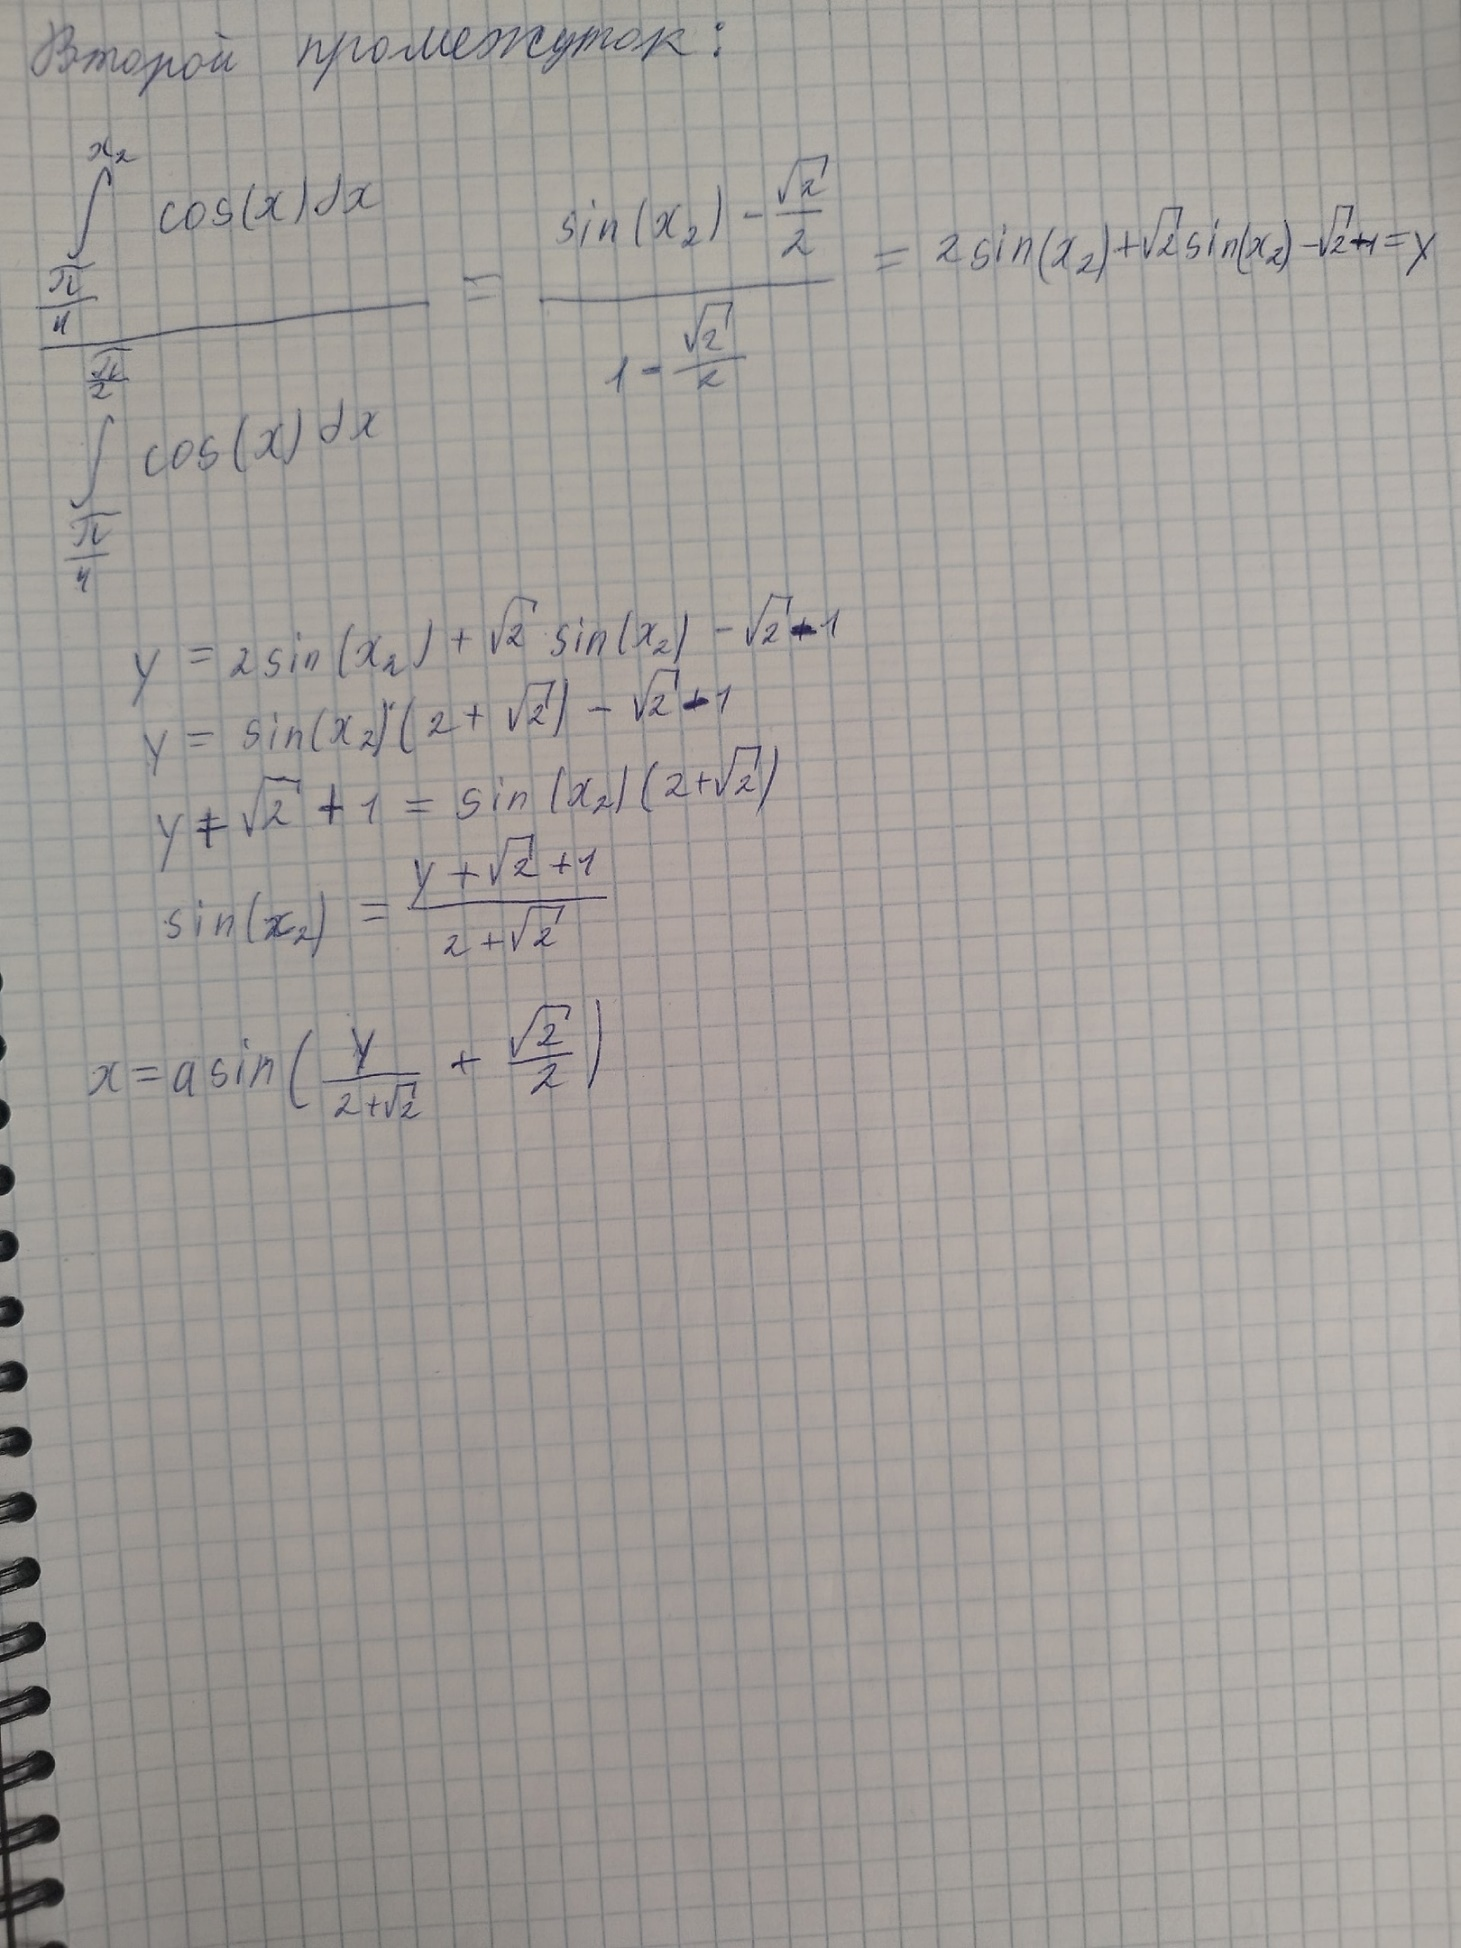 Второй промежуток:
∫_{π/4}^{x₂} cos(x)dx / ∫_{π/4}^{π/2} cos(x)dx = (sin(x₂) - √2/2) / (1 - √2/2) = 2sin(x₂)+√2 sin(x₂) -√2-1=y
y = 2sin(x₂) + √2 sin(x₂) - √2-1
y = sin(x₂)(2 + √2) - √2-1
y+√2 + 1 = sin(x₂)(2+√2)
sin(x₂) = (y+√2+1) / (2+√2)
x=asin(y/(2+√2) + √2/2)